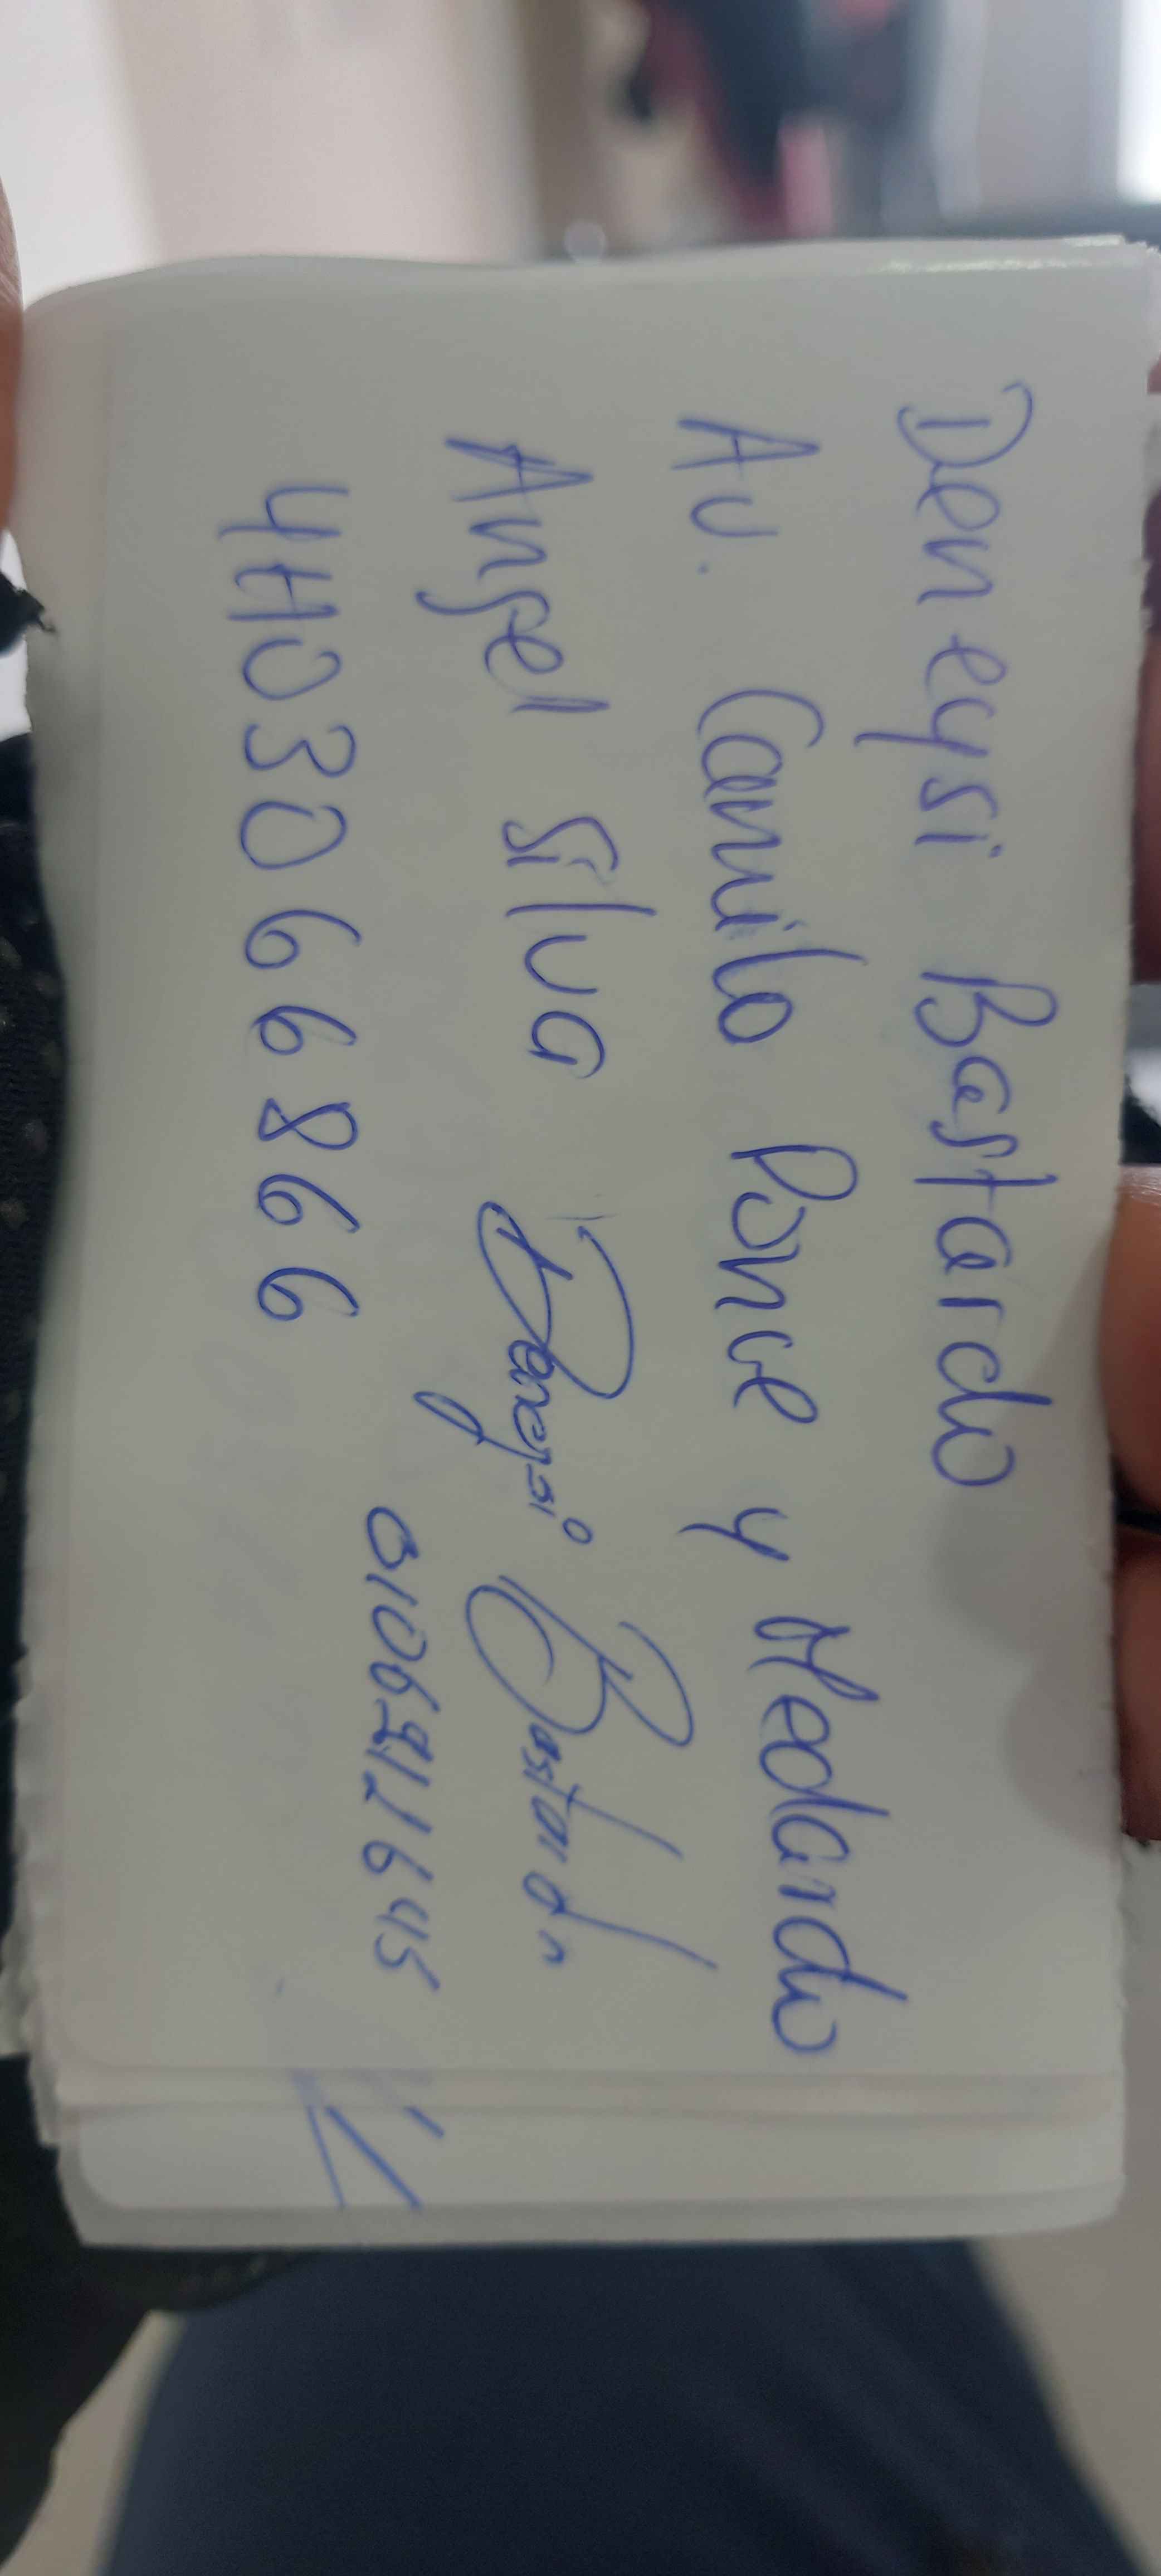 Deneysi Bastardo
Av. Camilo Ponce y Medardo
Angel Silva Deneysi Bastardo
0106911645
4H030666866